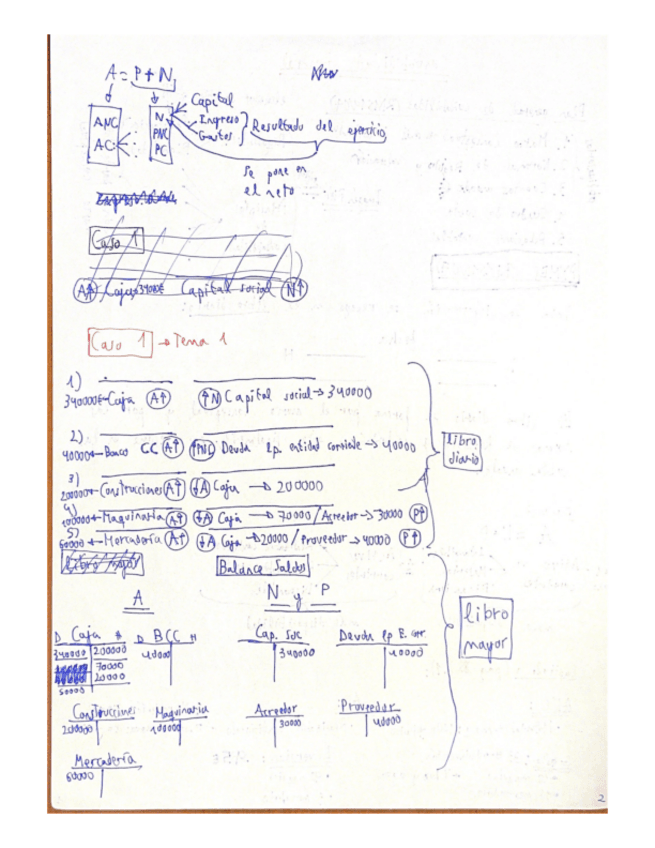 A = P + N
ANC
AC
N
PNC
PC
Capital
Ingreso
Gastos
Resultado del ejercicio
Se pone en
el neto
Caso 1
A↑ Caja 340000€ Capital social N↑
Caso 1 → Tema 1
1)
340000€ ← Caja A↑ ↑N Capital social → 340000
2)
40000 ← Banco CC A↑ ↑PNC Deuda lp entidad → 40000
3)
200000 ← Construcciones A↑ ↓A Caja → 200000
4)
100000 ← Maquinaria A↑ ↓A Caja → 70000 / Acreedor → 30000 P↑
5)
60000 ← Mercadería A↑ ↓A Caja → 20000 / Proveedor → 40000 P↑
libro
diario
Libro mayor
Balance Saldos
A
N y P
D Caja H
340000 200000
70000
20000
50000
D BCC H
40000
Cap. Soc
340000
Deuda lp E.
40000
libro
mayor
Construcciones
200000
Maquinaria
100000
Acreedor
30000
Proveedor
40000
Mercadería
60000
2